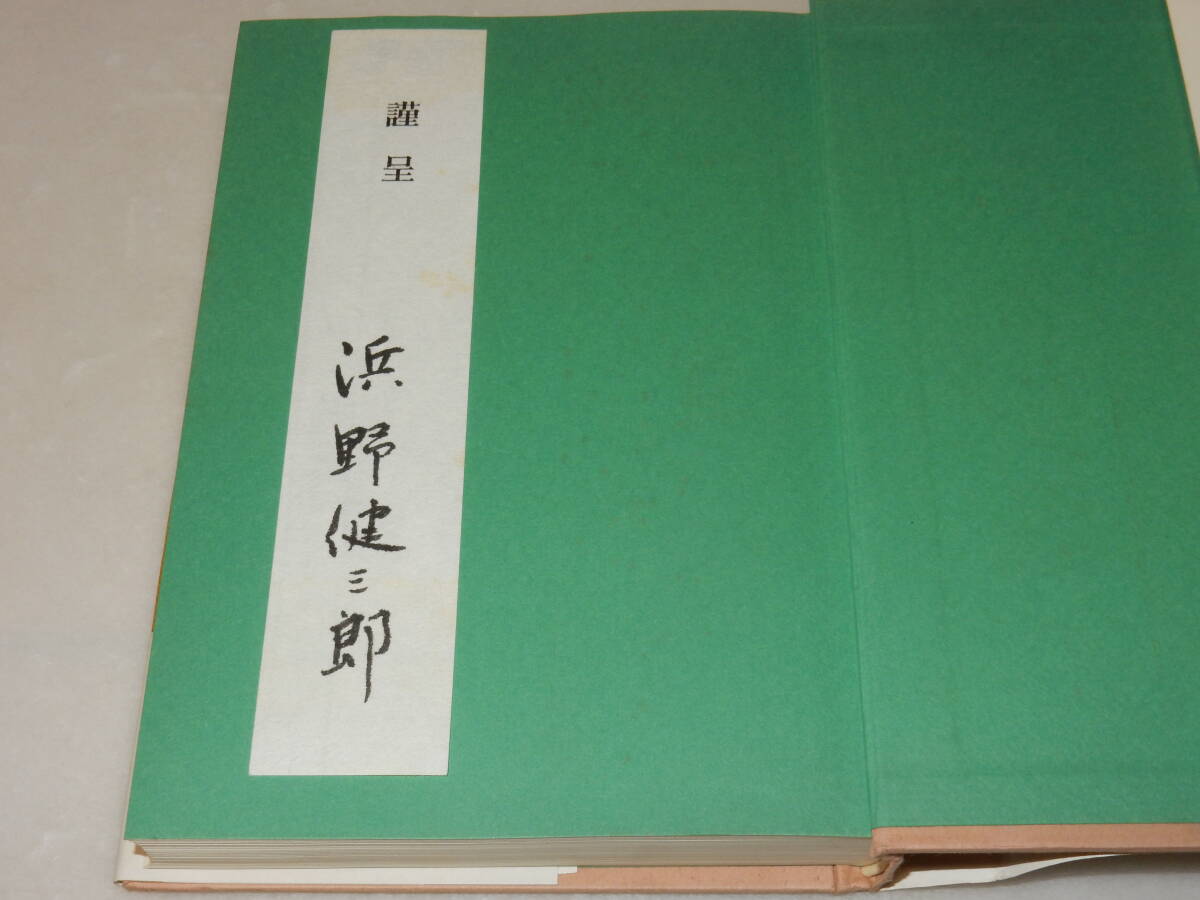 謹呈
浜野健三郎